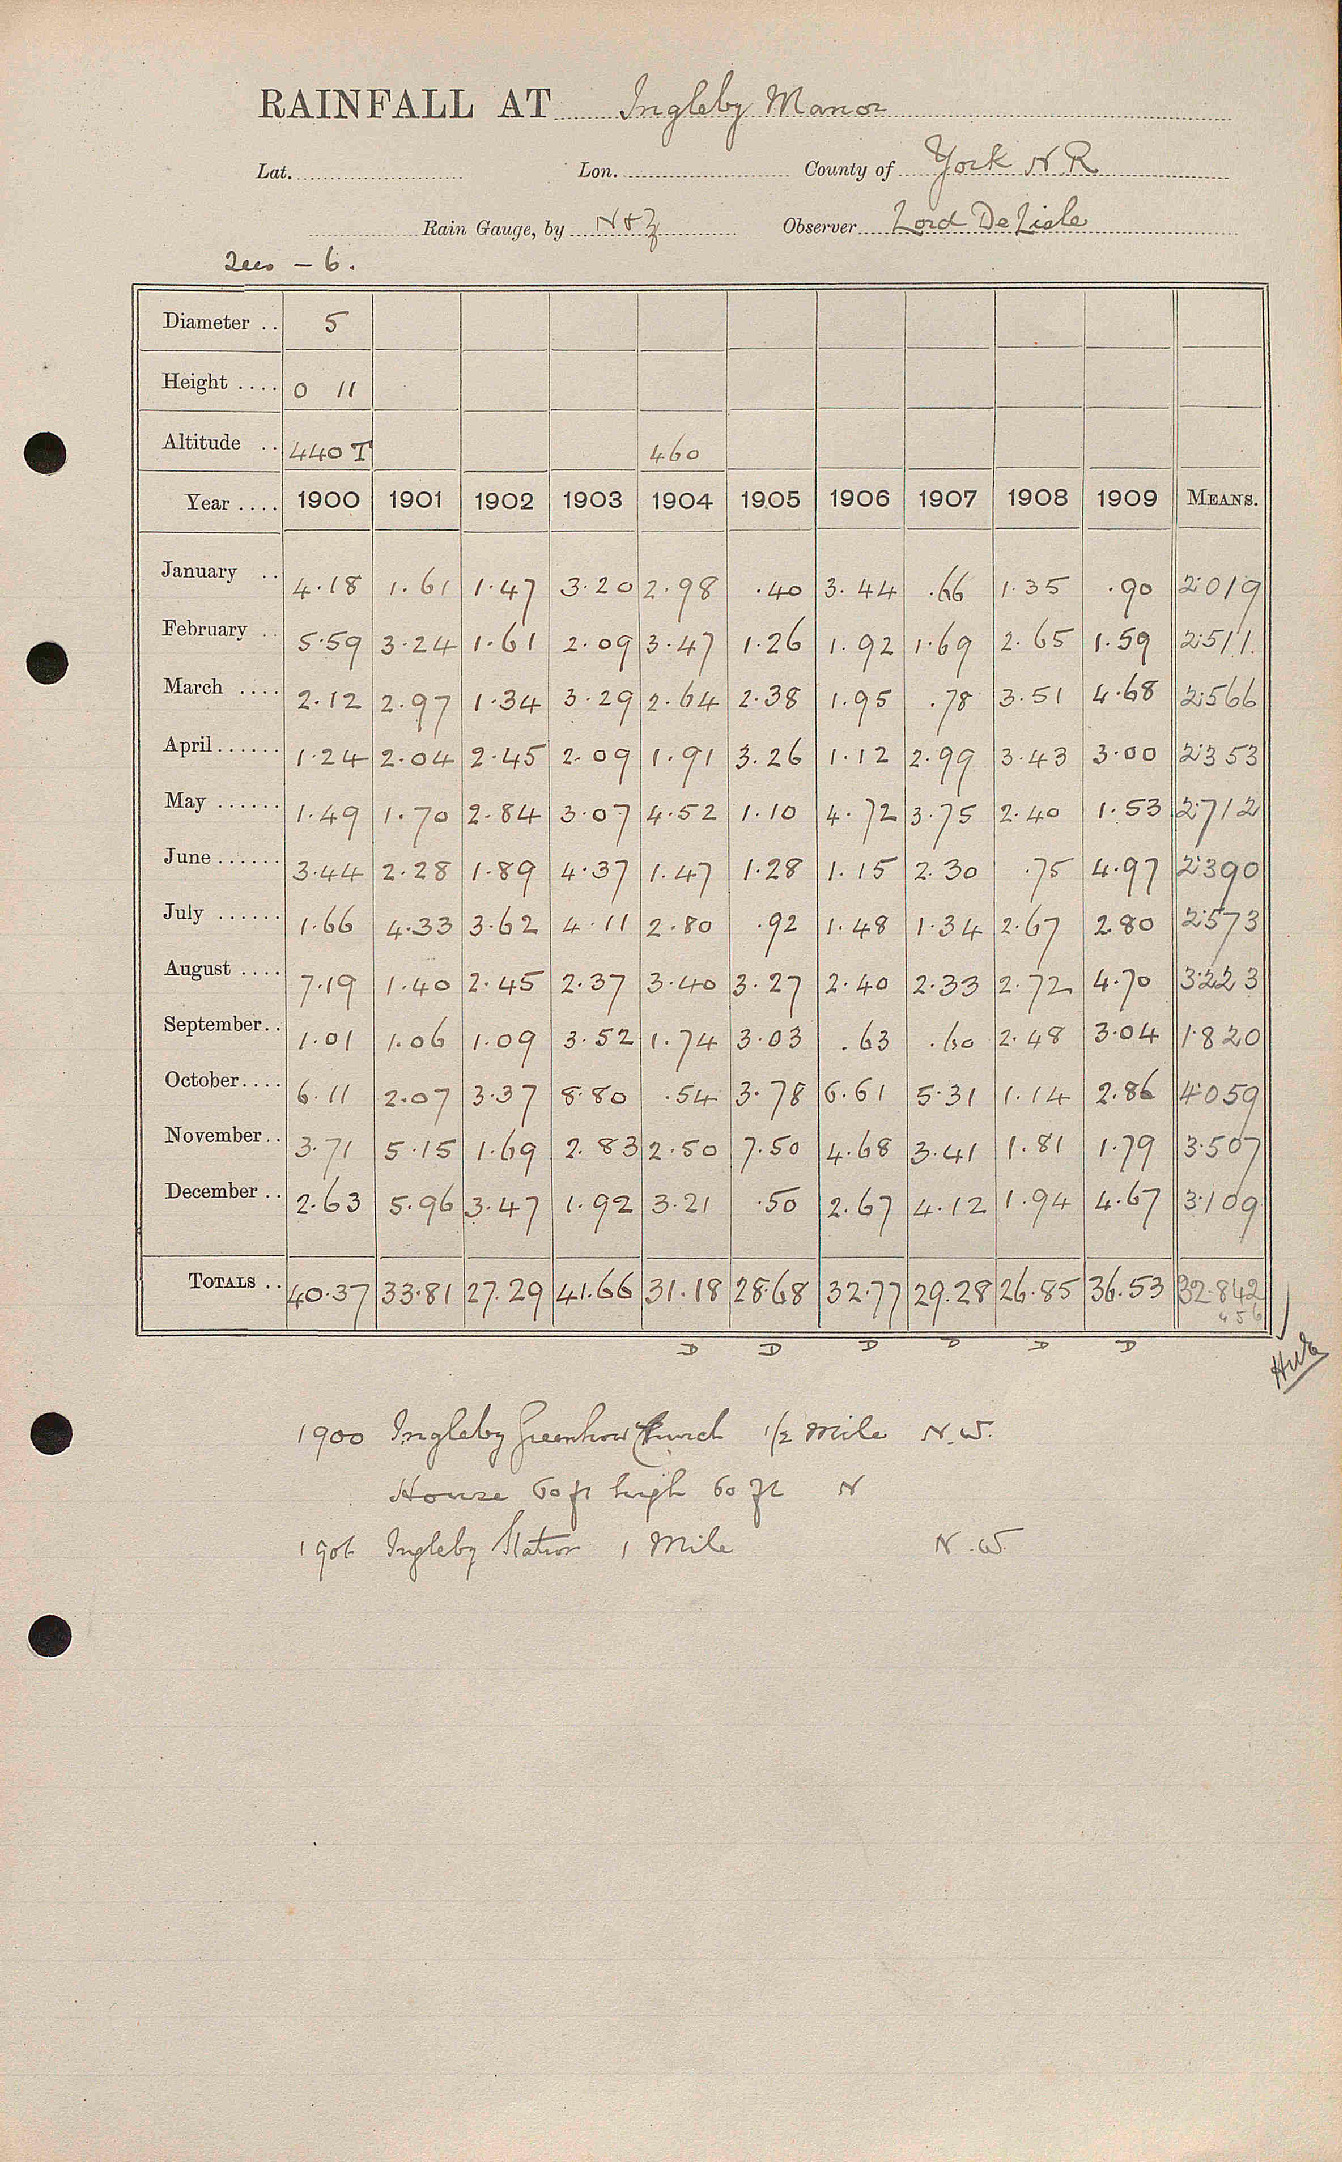 RAINFALL AT Ingleby Manor
Lat. Lon. County of York N R
Rain Gauge, by N & Z Observer Lord De Lisle
- 6.
Diameter .. 5
Height .... 0 11
Altitude .. 440 T 460
Year .... 1900 1901 1902 1903 1904 1905 1906 1907 1908 1909 MEANS.
January .. 4.18 1.61 1.47 3.20 2.98 .40 3.44 .66 1.35 .90 2.019
February .. 5.59 3.24 1.61 2.09 3.47 1.26 1.92 1.69 2.65 1.59 2.511
March .... 2.12 2.97 1.34 3.29 2.64 2.38 1.95 .78 3.51 4.68 2.566
April...... 1.24 2.04 2.45 2.09 1.91 3.26 1.12 2.99 3.43 3.00 2.353
May ...... 1.49 1.70 2.84 3.07 4.52 1.10 4.72 3.75 2.40 1.53 2.712
June...... 3.44 2.28 1.89 4.37 1.47 1.28 1.15 2.30 .75 4.97 2.390
July ...... 1.66 4.33 3.62 4.11 2.80 .92 1.48 1.34 2.67 2.80 2.573
August .... 7.19 1.40 2.45 2.37 3.40 3.27 2.40 2.33 2.72 4.70 3.223
September.. 1.01 1.06 1.09 3.52 1.74 3.03 .63 .60 2.48 3.04 1.820
October.... 6.11 2.07 3.37 8.80 .54 3.78 6.61 5.31 1.14 2.86 4.059
November.. 3.71 5.15 1.69 2.83 2.50 7.50 4.68 3.41 1.81 1.79 3.507
December .. 2.63 5.96 3.47 1.92 3.21 .50 2.67 4.12 1.94 4.67 3.109
TOTALS .. 40.37 33.81 27.29 41.66 31.18 28.68 32.77 29.28 26.85 36.53 32.842
D D D D D D
1900 Ingleby Greenhow Church 1/2 Mile N.W.
House 60 ft high 60 ft N
1906 Ingleby Station 1 Mile N.W.